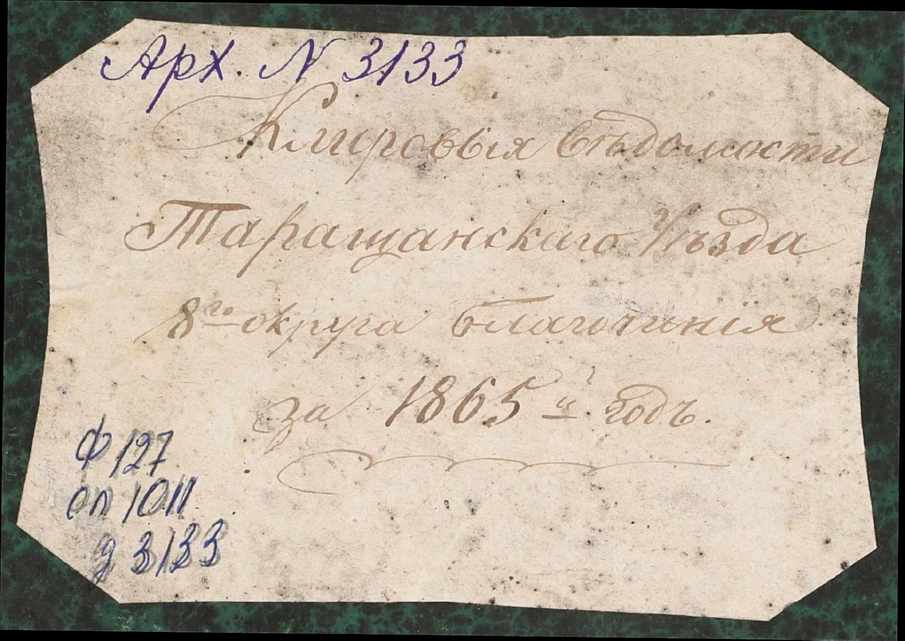 Арх. N 3133
Клировыя вѣдомости
Таращанскаго Уѣзда
8го округа благочинія
за 1865й годъ.
ф 127
оп 1011
д 3133